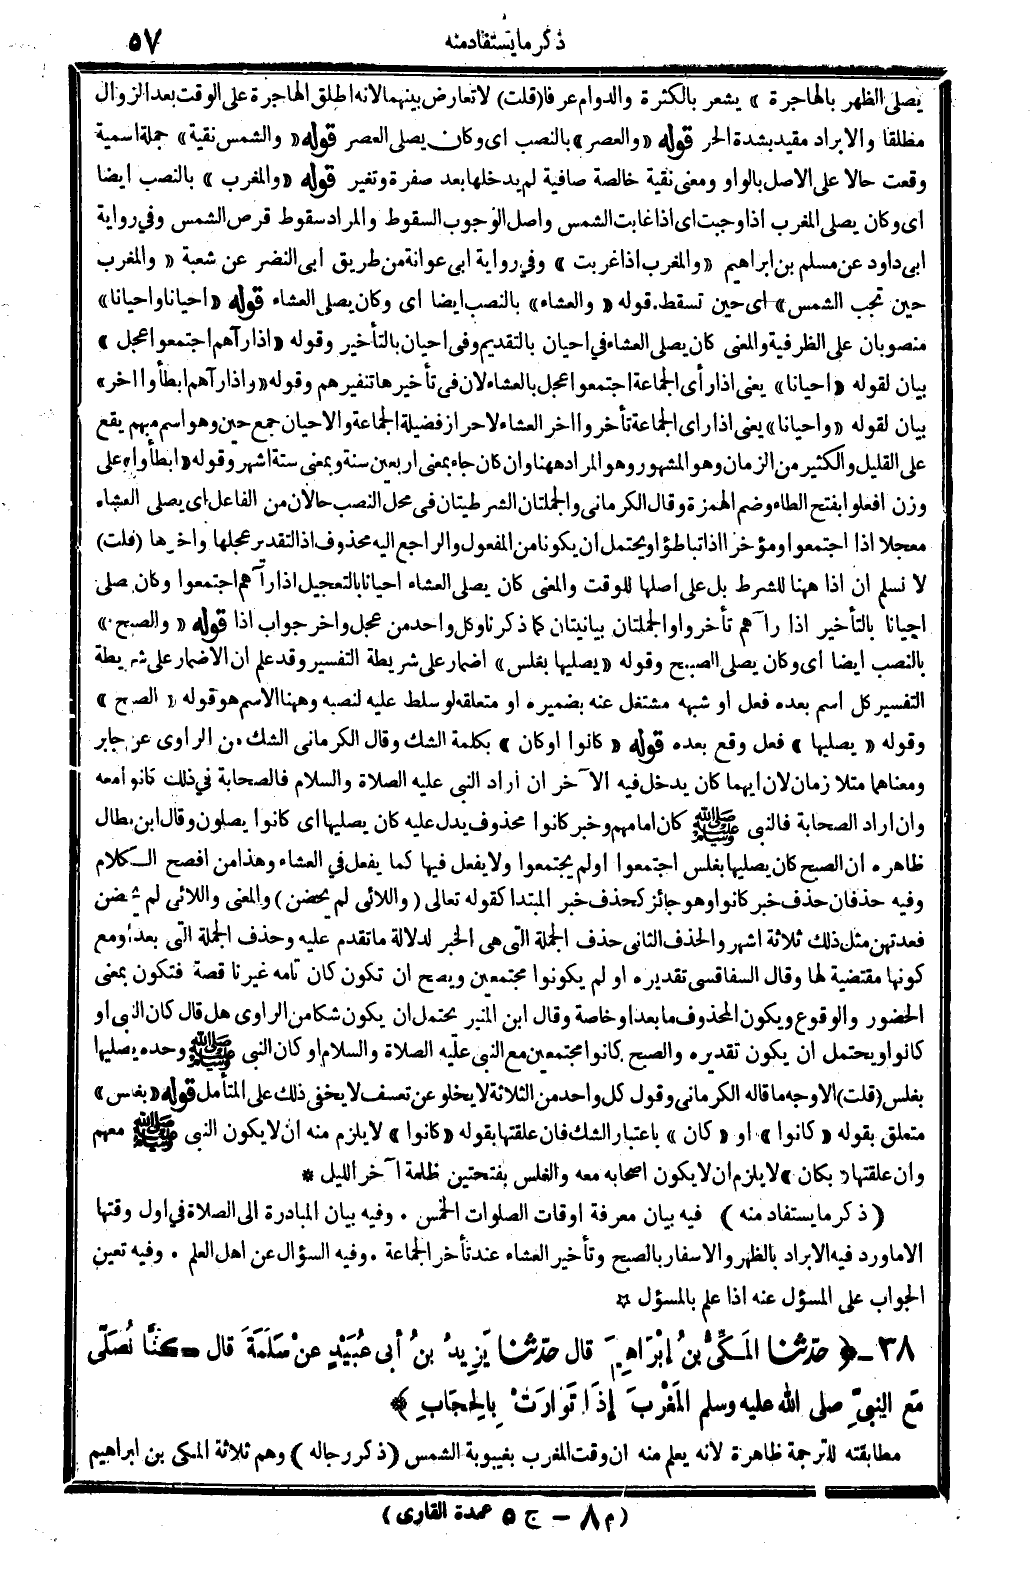 ذكر ما يستفاد منه ٥٧
يصلى الظهر بالهاجرة » يشعر بالكثرة والدوام عرفا (قلت) لا تعارض بينهما لانه اطلق الهاجرة على الوقت بعد الزوال
مطلقا والابراد مقيد بشدة الحر قوله « والعصر » بالنصب اى وكان يصلى العصر قوله « والشمس نقية » جملة اسمية
وقعت حالا على الاصل بالواو ومعنى نقية خالصة صافية لم يدخلها بعد صفرة وتغير قوله « والمغرب » بالنصب ايضا
اى وكان يصلى المغرب اذا وجبت اى اذا غابت الشمس واصل الوجوب السقوط والمراد سقوط قرص الشمس وفي رواية
ابى داود عن مسلم بن ابراهيم « والمغرب اذا غربت » وفي رواية ابى عوانة من طريق ابى النضر عن شعبة « والمغرب
حين تجب الشمس » اى حين تسقط. قوله « والعشاء » بالنصب ايضا اى وكان يصلى العشاء قوله « احيانا واحيانا »
منصوبان على الظرفية والمعنى كان يصلى العشاء في احيان بالتقديم وفى احيان بالتأخير وقوله « اذا رآهم اجتمعوا عجل »
بيان لقوله « احيانا » يعنى اذا رأى الجماعة اجتمعوا عجل بالعشاء لان فى تأخيرها تنفيرهم وقوله « واذا رآهم ابطأوا اخر »
بيان لقوله « واحيانا » يعنى اذا راى الجماعة تأخروا اخر العشاء لاحراز فضيلة الجماعة والاحيان جمع حين وهو اسم مبهم يقع
على القليل والكثير من الزمان وهو المشهور وهو المراد ههنا وان كان جاء بمعنى اربعين سنة وبمعنى ستة اشهر وقوله « ابطأوا » على
وزن افعلوا بفتح الطاء وضم الهمزة وقال الكرمانى والجملتان الشرطيتان فى محل النصب حالان من الفاعل اى يصلى العشاء
معجلا اذا اجتمعوا ومؤخرا اذا تباطؤا ويحتمل ان يكونا من المفعول والراجع اليه محذوف اذ التقدير عجلها واخرها (قلت)
لا نسلم ان اذا ههنا للشرط بل على اصلها للوقت والمعنى كان يصلى العشاء احيانا بالتعجيل اذا رآهم اجتمعوا وكان يصلى
احيانا بالتأخير اذا رآهم تأخروا والجملتان بيانيتان كما ذكرنا وكل واحد من عجل واخر جواب اذا قوله « والصبح »
بالنصب ايضا اى وكان يصلى الصبح وقوله « يصليها بغلس » اضمار على شريطة التفسير وقد علم ان الاضمار على شريطة
التفسير كل اسم بعده فعل او شبهه مشتغل عنه بضميره او متعلقه لو سلط عليه لنصبه وههنا الاسم هو قوله « الصبح »
وقوله « يصليها » فعل وقع بعده قوله « كانوا او كان » بكلمة الشك وقال الكرمانى الشك من الراوى عن جابر
ومعناهما متلا زمان لان ايهما كان يدخل فيه الآخر ان اراد النبي عليه الصلاة والسلام فالصحابة في ذلك كانوا معه
وان اراد الصحابة فالنبى ﷺ كان امامهم وخبر كانوا محذوف يدل عليه كان يصليها اى كانوا يصلون وقال ابن بطال
ظاهره ان الصبح كان يصليها بغلس اجتمعوا او لم يجتمعوا ولا يفعل فيها كما يفعل في العشاء وهذا من افصح الكلام
وفيه حذفان حذف خبر كانوا وهو جائز كحذف خبر المبتدا كقوله تعالى (واللائى لم يحضن) والمعنى واللائى لم يحضن
فعدتهن مثل ذلك ثلاثة اشهر والحذف الثانى حذف الجملة التى هى الخبر لدلالة ما تقدم عليه وحذف الجملة التى بعد او مع
كونها مقتضية لها وقال السفاقسى تقديره او لم يكونوا مجتمعين ويصح ان تكون كان تامه غير ناقصة فتكون بمعنى
الحضور والوقوع ويكون المحذوف ما بعد او خاصة وقال ابن المنير يحتمل ان يكون شكا من الراوى هل قال كان النبى او
كانوا ويحتمل ان يكون تقديره والصبح كانوا مجتمعين مع النبي عليه الصلاة والسلام او كان النبى ﷺ وحده يصليها
بغلس (قلت) الاوجه ما قاله الكرمانى وقول كل واحد من الثلاثة لا يخلو عن تعسف لا يخفى ذلك على المتأمل قوله « بغلس »
متعلق بقوله « كانوا » او « كان » باعتبار الشك فان علقتها بقوله « كانوا » لا يلزم منه ان لا يكون النبى ﷺ معهم
وان علقتها « بكان » لا يلزم ان لا يكون اصحابه معه والغلس بفتحتين ظلمة آخر الليل *
(ذكر ما يستفاد منه) فيه بيان معرفة اوقات الصلوات الخمس . وفيه بيان المبادرة الى الصلاة في اول وقتها
الا ما ورد فيه الابراد بالظهر والاسفار بالصبح وتأخير العشاء عند تأخر الجماعة . وفيه السؤال عن اهل العلم . وفيه تعين
الجواب على المسؤل عنه اذا علم بالمسؤل ☆
٣٨ - ﴿ حَدَّثَنَا المَكِّيُّ بنُ إبْرَاهِيمَ قال حَدَّثَنَا يَزِيدُ بنُ أبى عُبَيْدٍ عنْ سَلَمَةَ قال كُنَّا نُصَلِّى
مَعَ النبِيِّ صلى الله عليه وسلم المَغْرِبَ إذَا تَوَارَتْ بِالحِجَابِ ﴾
مطابقته للترجمة ظاهرة لأنه يعلم منه ان وقت المغرب بغيبوبة الشمس (ذكر رجاله) وهم ثلاثة المكى بن ابراهيم
(م ٨ – ج ٥ عمدة القارى)